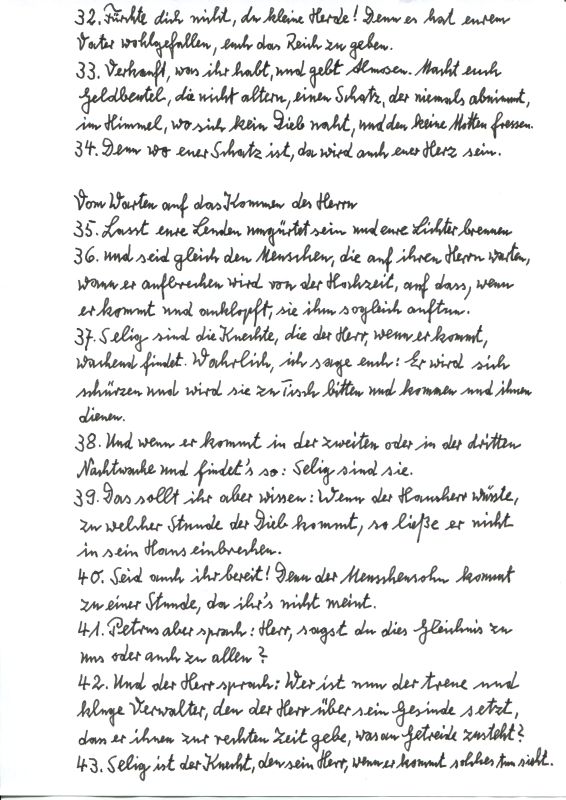 32. Fürchte dich nicht, du kleine Herde! Denn es hat eurem
Vater wohlgefallen, euch das Reich zu geben.
33. Verkauft, was ihr habt, und gebt Almosen. Macht euch
Geldbeutel, die nicht altern, einen Schatz, der niemals abnimmt,
im Himmel, wo sich kein Dieb naht, und den keine Motten fressen.
34. Denn wo euer Schatz ist, da wird auch euer Herz sein.
Vom Warten auf das Kommen des Herrn
35. Lasst eure Lenden umgürtet sein und eure Lichter brennen
36. und seid gleich den Menschen, die auf ihren Herrn warten,
wann er aufbrechen wird von der Hochzeit, auf dass, wenn
er kommt und anklopft, sie ihm sogleich auftun.
37. Selig sind die Knechte, die der Herr, wenn er kommt,
wachend findet. Wahrlich, ich sage euch: Er wird sich
schürzen und wird sie zu Tisch bitten und kommen und ihnen
dienen.
38. Und wenn er kommt in der zweiten oder in der dritten
Nachtwache und findet's so: Selig sind sie.
39. Das sollt ihr aber wissen: Wenn der Hausherr wüsste,
zu welcher Stunde der Dieb kommt, so ließe er nicht
in sein Haus einbrechen.
40. Seid auch ihr bereit! Denn der Menschensohn kommt
zu einer Stunde, da ihr's nicht meint.
41. Petrus aber sprach: Herr, sagst du dies Gleichnis zu
uns oder auch zu allen?
42. Und der Herr sprach: Wer ist nun der treue und
kluge Verwalter, den der Herr über sein Gesinde setzt,
dass er ihnen zur rechten Zeit gebe, was an Getreide zusteht?
43. Selig ist der Knecht, den sein Herr, wenn er kommt solches tun sieht.